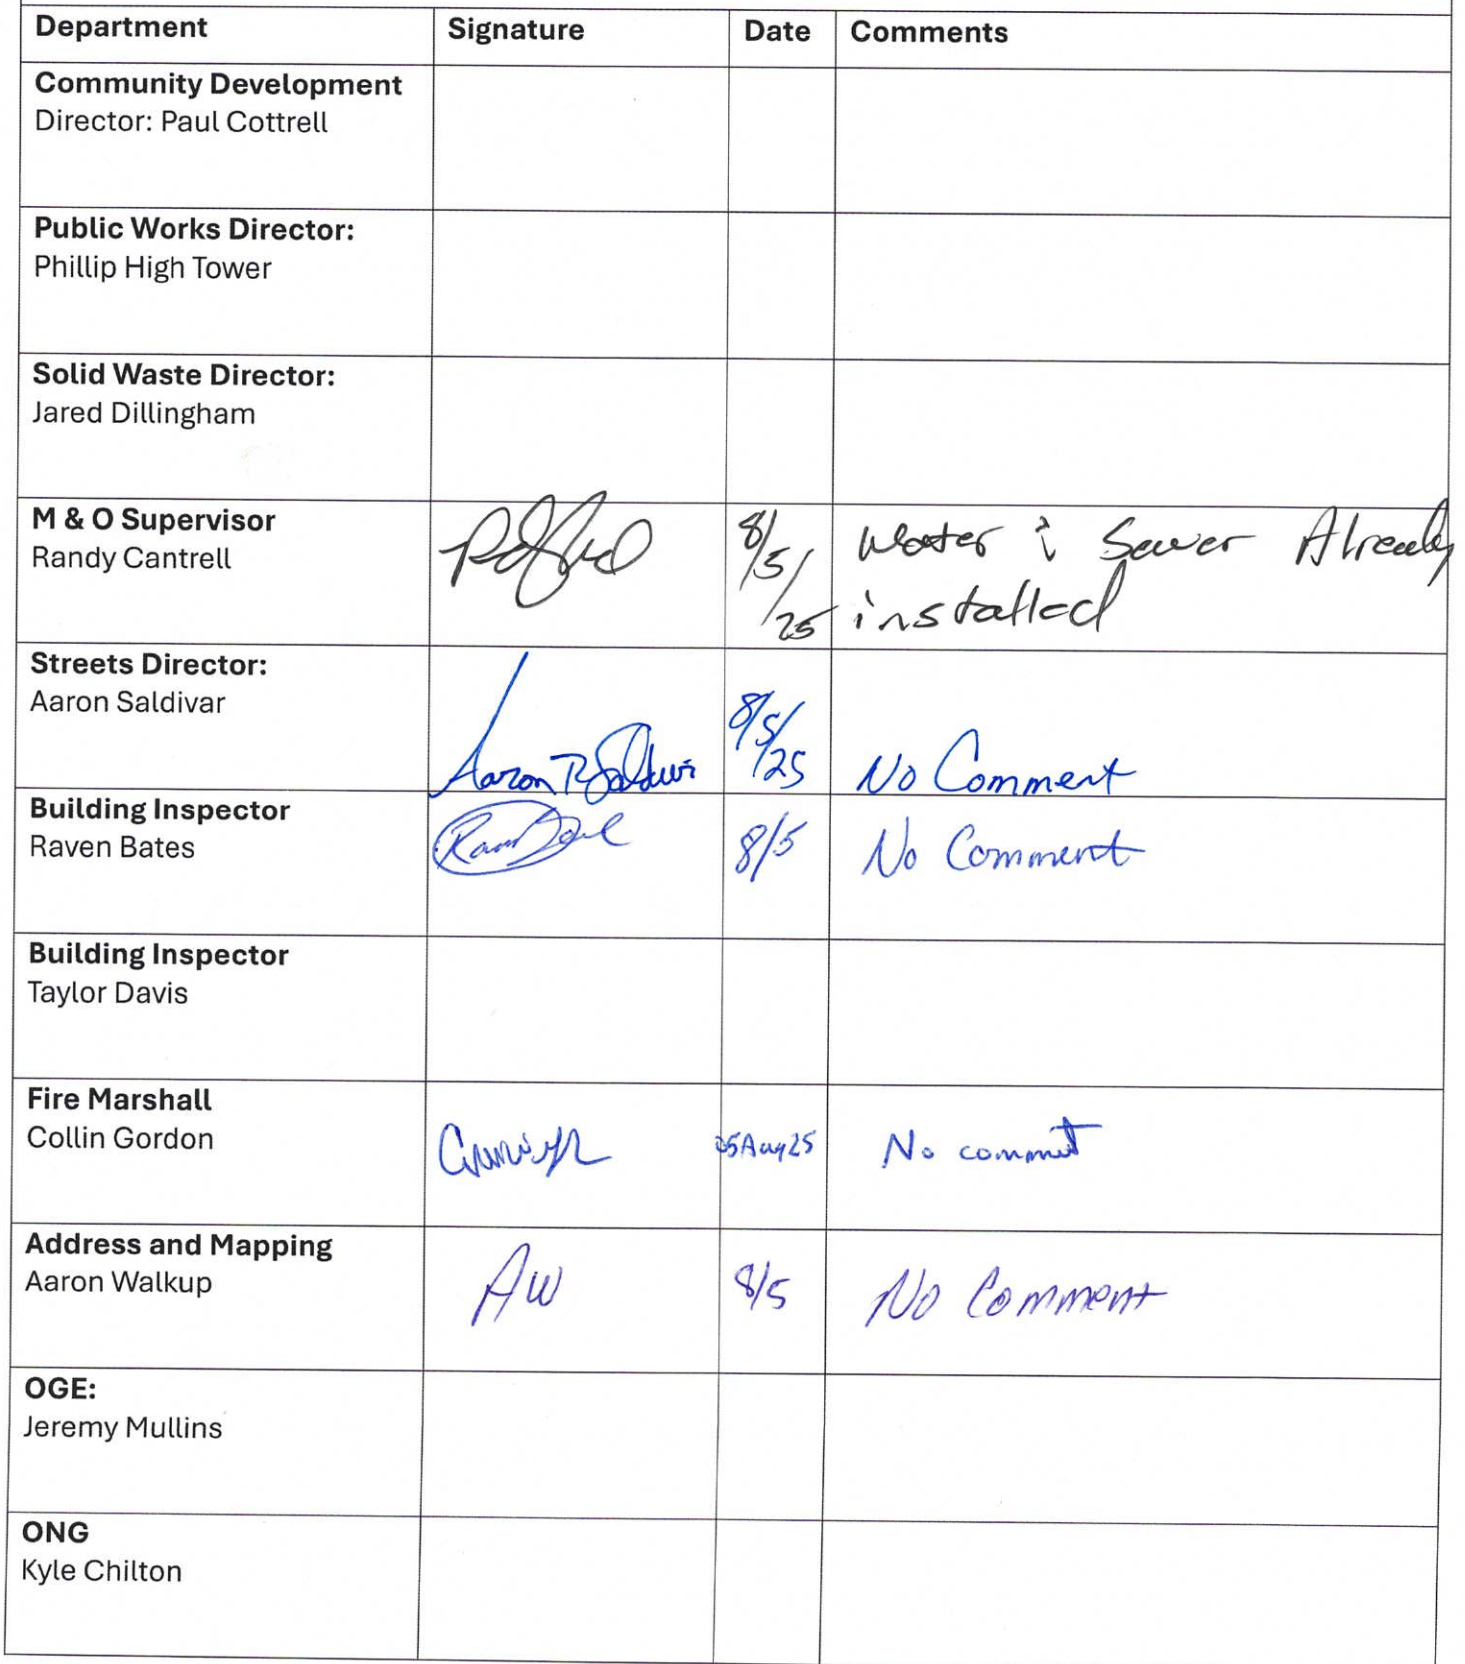 Department Signature Date Comments
Community Development
Director: Paul Cottrell
Public Works Director:
Phillip High Tower
Solid Waste Director:
Jared Dillingham
M & O Supervisor
Randy Cantrell
8/5/25
Water & Sewer Already
installed
Streets Director:
Aaron Saldivar
Aaron R Saldivar 8/5/25 No Comment
Building Inspector
Raven Bates
8/5 No Comment
Building Inspector
Taylor Davis
Fire Marshall
Collin Gordon
05Aug25 No comment
Address and Mapping
Aaron Walkup
AW 8/5 No Comment
OGE:
Jeremy Mullins
ONG
Kyle Chilton